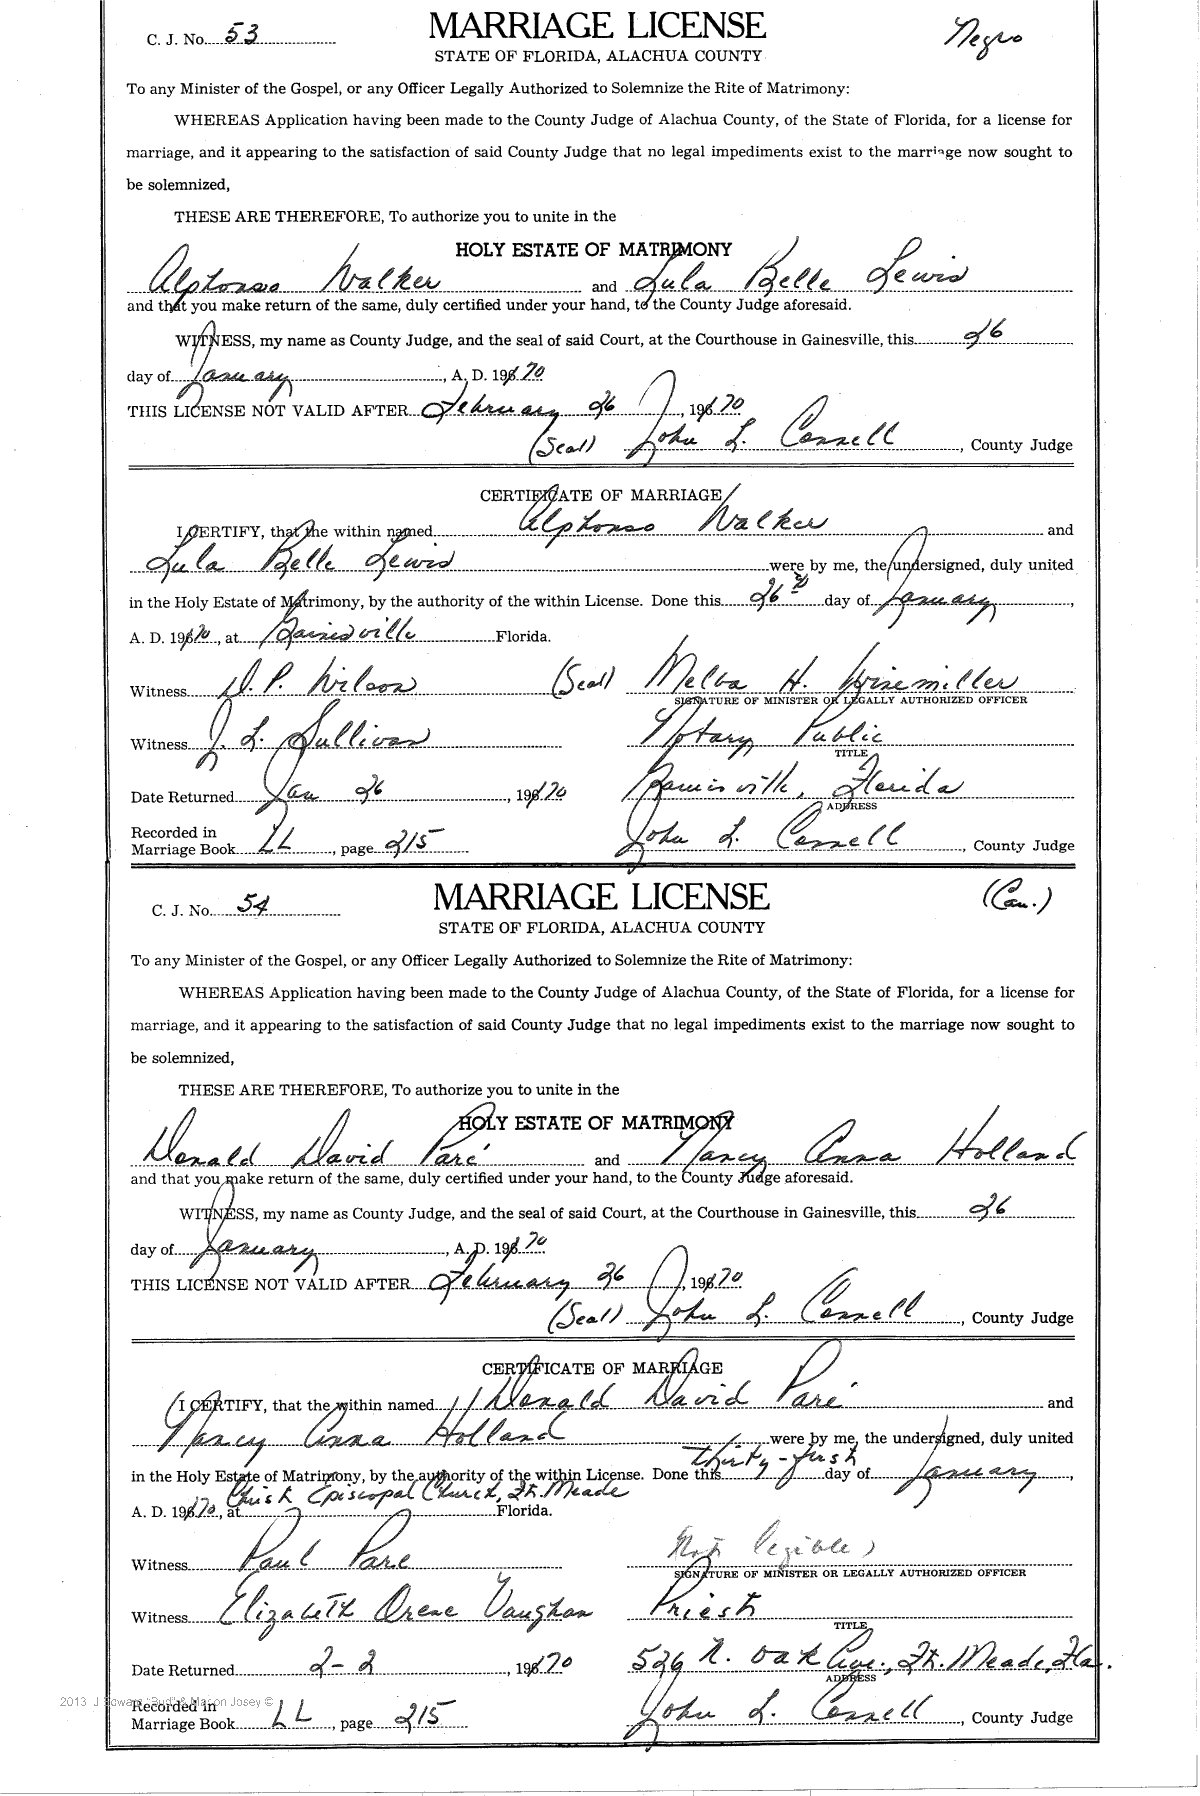 C. J. No. 53
MARRIAGE LICENSE
Negro
STATE OF FLORIDA, ALACHUA COUNTY
To any Minister of the Gospel, or any Officer Legally Authorized to Solemnize the Rite of Matrimony:
WHEREAS Application having been made to the County Judge of Alachua County, of the State of Florida, for a license for
marriage, and it appearing to the satisfaction of said County Judge that no legal impediments exist to the marriage now sought to
be solemnized,
THESE ARE THEREFORE, To authorize you to unite in the
HOLY ESTATE OF MATRIMONY
Alphonso Walker and Lula Belle Lewis
and that you make return of the same, duly certified under your hand, to the County Judge aforesaid.
WITNESS, my name as County Judge, and the seal of said Court, at the Courthouse in Gainesville, this 26
day of January, A. D. 19670
THIS LICENSE NOT VALID AFTER February 26, 19670
(Seal) John L. Connell, County Judge
CERTIFICATE OF MARRIAGE
I CERTIFY, that the within named Alphonso Walker and
Lula Belle Lewis were by me, the undersigned, duly united
in the Holy Estate of Matrimony, by the authority of the within License. Done this 26th day of January,
A. D. 19670, at Gainesville Florida.
Witness D. P. Wilson (Seal) Melba H. Winemiller
SIGNATURE OF MINISTER OR LEGALLY AUTHORIZED OFFICER
Witness J. L. Sullivan Notary Public
TITLE
Date Returned Jan 26, 19670 Gainesville, Florida
ADDRESS
Recorded in
Marriage Book LL, page 215 John L. Connell, County Judge
C. J. No. 54
MARRIAGE LICENSE
(Cau.)
STATE OF FLORIDA, ALACHUA COUNTY
To any Minister of the Gospel, or any Officer Legally Authorized to Solemnize the Rite of Matrimony:
WHEREAS Application having been made to the County Judge of Alachua County, of the State of Florida, for a license for
marriage, and it appearing to the satisfaction of said County Judge that no legal impediments exist to the marriage now sought to
be solemnized,
THESE ARE THEREFORE, To authorize you to unite in the
HOLY ESTATE OF MATRIMONY
Donald David Paré and Nancy Anna Holland
and that you make return of the same, duly certified under your hand, to the County Judge aforesaid.
WITNESS, my name as County Judge, and the seal of said Court, at the Courthouse in Gainesville, this 26
day of January, A. D. 19670
THIS LICENSE NOT VALID AFTER February 26, 19670
(Seal) John L. Connell, County Judge
CERTIFICATE OF MARRIAGE
I CERTIFY, that the within named Donald David Paré and
Nancy Anna Holland were by me, the undersigned, duly united
in the Holy Estate of Matrimony, by the authority of the within License. Done this thirty-first day of January,
A. D. 19670, at Christ Episcopal Church, Ft. Meade Florida.
Witness Paul Pare (Not legible)
SIGNATURE OF MINISTER OR LEGALLY AUTHORIZED OFFICER
Witness Elizabeth Orene Vaughan Priest
TITLE
Date Returned 2-2, 19670 526 N. Oak Ave., Ft. Meade, Fla.
ADDRESS
2013 J Edward "Bud" & Mason Josey ©
Recorded in
Marriage Book LL, page 215 John L. Connell, County Judge